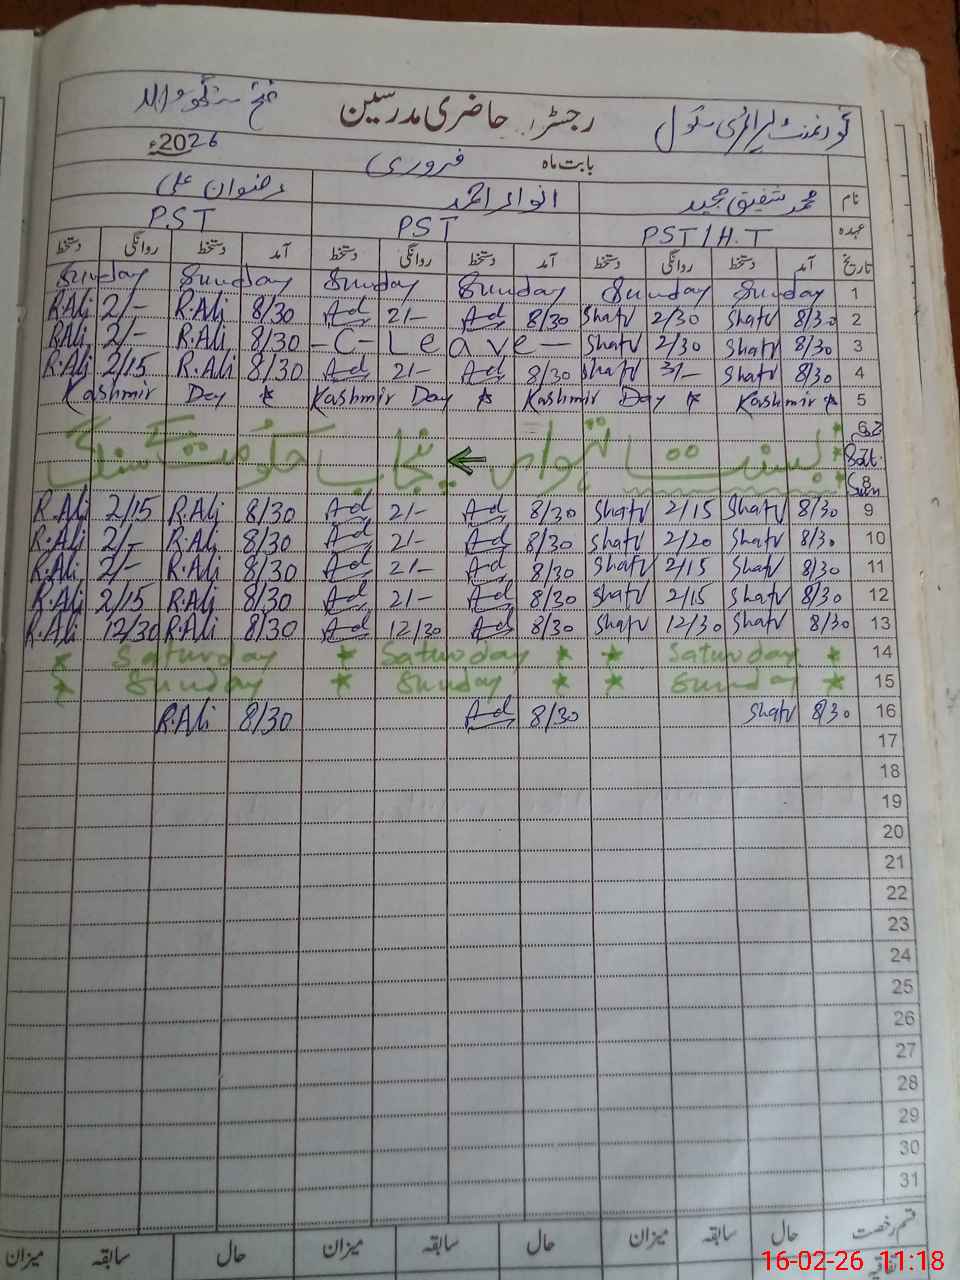 گورنمنٹ پرائمری سکول رجسٹر حاضری مدرسین فتح سنگھ والا
بابت ماہ فروری 2026ء
نام محمد شفیق مجید انوار احمد رضوان علی
عہدہ PST/H.T PST PST
تاریخ آمد دستخط روانگی دستخط آمد دستخط روانگی دستخط آمد دستخط روانگی دستخط
1 Sunday Sunday Sunday Sunday Sunday Sunday
2 8/30 Shafv 2/30 Shafv 8/30 Ad 2/- Ad 8/30 R.Ali 2/- R.Ali
3 8/30 Shafv 2/30 Shafv -C-Leave- 8/30 R.Ali 2/- R.Ali
4 8/30 Shafv 3/- Shafv 8/30 Ad 2/- Ad 8/30 R.Ali 2/15 R.Ali
5 Kashmir Day * Kashmir Day * Kashmir Day * Kashmir *
6
7 Sat. بسنت تہوار ← پنجاب حکومت
8 Sun
9 8/30 Shafv 2/15 Shafv 8/30 Ad 2/- Ad 8/30 R.Ali 2/15 R.Ali
10 8/30 Shafv 2/20 Shafv 8/30 Ad 2/- Ad 8/30 R.Ali 2/- R.Ali
11 8/30 Shafv 2/15 Shafv 8/30 Ad 2/- Ad 8/30 R.Ali 2/- R.Ali
12 8/30 Shafv 2/15 Shafv 8/30 Ad 2/- Ad 8/30 R.Ali 2/15 R.Ali
13 8/30 Shafv 12/30 Shafv 8/30 Ad 12/30 Ad 8/30 R.Ali 12/30 R.Ali
14 * Saturday * * Saturday * Saturday *
15 * Sunday * * Sunday * Sunday *
16 8/30 Shafv 8/30 Ad 8/30 R.Ali
17
18
19
20
21
22
23
24
25
26
27
28
29
30
31
قسم رخصت حال سابقہ میزان حال سابقہ میزان حال سابقہ میزان
اتفاقیہ
16-02-26 11:18